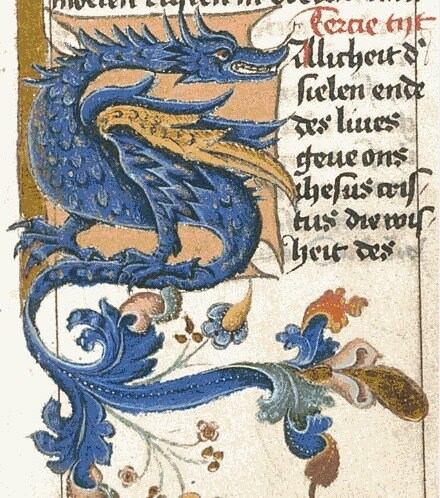 Tercie tijt
Alicheit d'
sielen ende
des liues
geue ons
ihesus cris
tus die wis
heit des